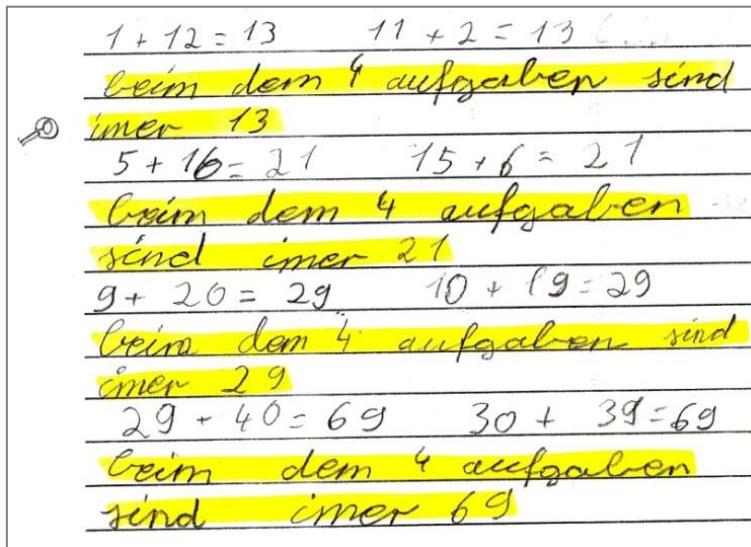 1 + 12 = 13 11 + 2 = 13
beim dem 4 aufgaben sind
imer 13
5 + 16 = 21 15 + 6 = 21
beim dem 4 aufgaben
sind imer 21
9 + 20 = 29 10 + 19 = 29
beim dem 4 aufgaben sind
imer 29
29 + 40 = 69 30 + 39 = 69
beim dem 4 aufgaben
sind imer 69